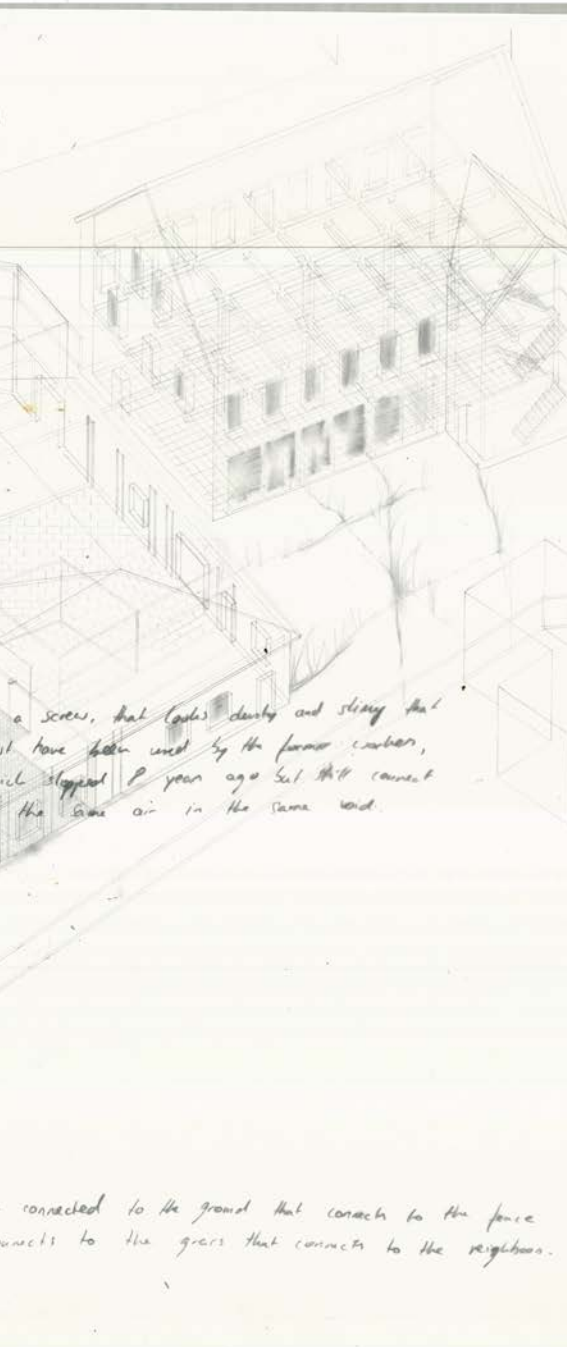 a screw, that looks dusty and slimy that
have been used by the former workers,
stopped 8 year ago but still connect
the same air in the same void.
connected to the ground that connects to the fence
to the grass that connects to the neighboors.